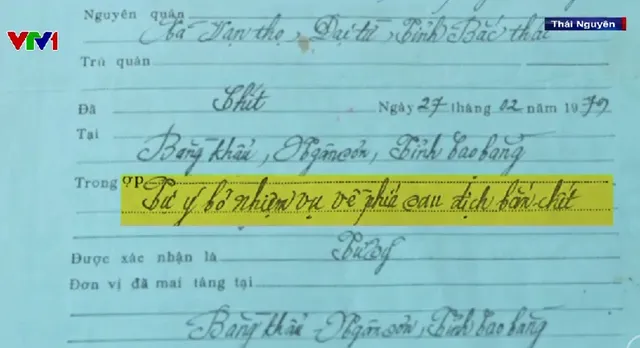 VTV1
Thái Nguyên
Nguyên quán Xã Vạn thọ, Đại từ, Tỉnh Bắc thái
Trú quán
Đã Chết Ngày 27 tháng 02 năm 1979
Tại Bằng khẩu, Ngân sơn, Tỉnh Cao bằng
Trong
Tự ý bỏ nhiệm vụ về phía sau địch bắn chết
Được xác nhận là Tử sỹ
Đơn vị đã mai táng tại
Bằng khẩu - Ngân sơn, Tỉnh Cao bằng